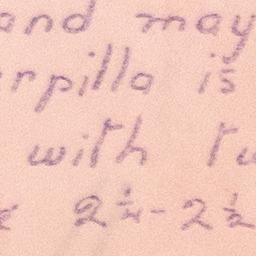 and may
erpilla is
with tu
2 1/4 - 2 1/2